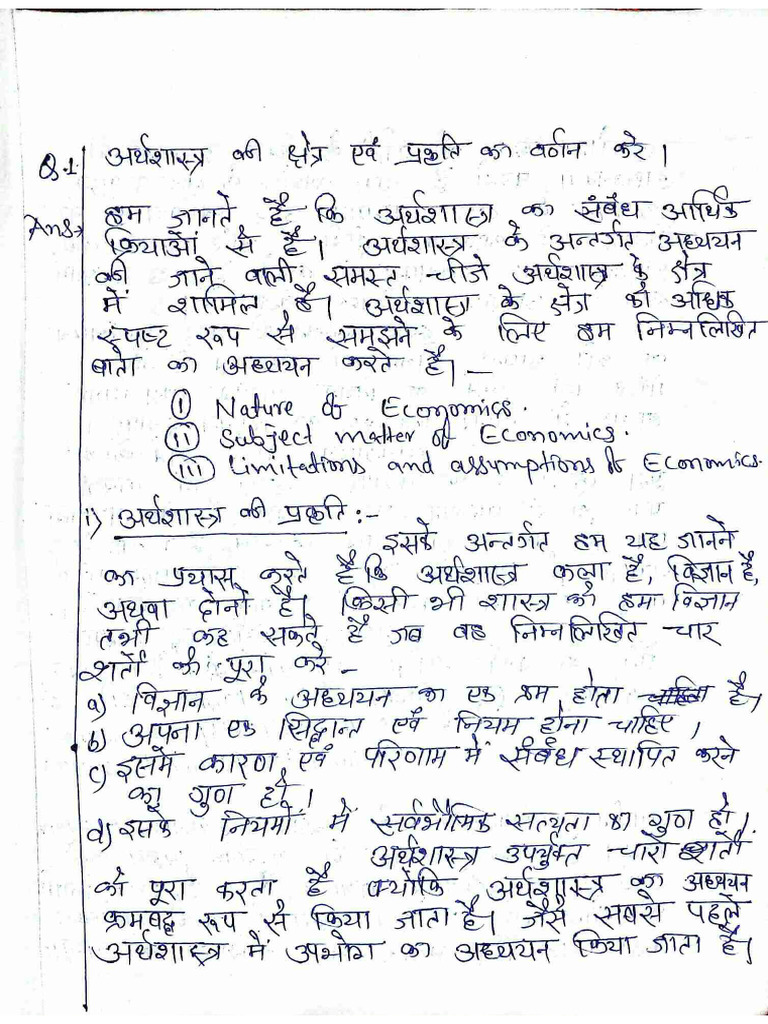 Q.1 अर्थशास्त्र की क्षेत्र एवं प्रकृति का वर्णन करे।
Ans→ हम जानते है कि अर्थशास्त्र का संबंध आर्थिक
क्रियाओं से है। अर्थशास्त्र के अन्तर्गत अध्ययन
की जाने वाली समस्त चीजे अर्थशास्त्र के क्षेत्र
में शामिल है। अर्थशास्त्र के क्षेत्र को अधिक
स्पष्ट रूप से समझने के लिए हम निम्नलिखित
बातो का अध्ययन करते है। –
(i) Nature of Economics.
(ii) Subject matter of Economics.
(iii) Limitations and assumptions of Economics.
i) अर्थशास्त्र की प्रकृति :-
इसके अन्तर्गत हम यह जानने
का प्रयास करते है कि अर्थशास्त्र कला है, विज्ञान है,
अथवा दोनो है। किसी भी शास्त्र को हम विज्ञान
तभी कह सकते है जब वह निम्नलिखित चार
शर्तो को पूरा करे –
a) विज्ञान के अध्ययन का एक क्रम होता चाहिए है।
b) अपना एक सिद्धान्त एवं नियम होना चाहिए,
c) इसमें कारण एवं परिणाम में संबंध स्थापित करने
का गुण हो।
d) इसके नियमों में सर्वभौमिक सत्यता का गुण हो।
अर्थशास्त्र उपर्युक्त चारो शर्तो
को पूरा करता है क्योंकि अर्थशास्त्र का अध्ययन
क्रमबद्ध रूप से किया जाता है। जैसे सबसे पहले
अर्थशास्त्र में उपभोग का अध्ययन किया जाता है।